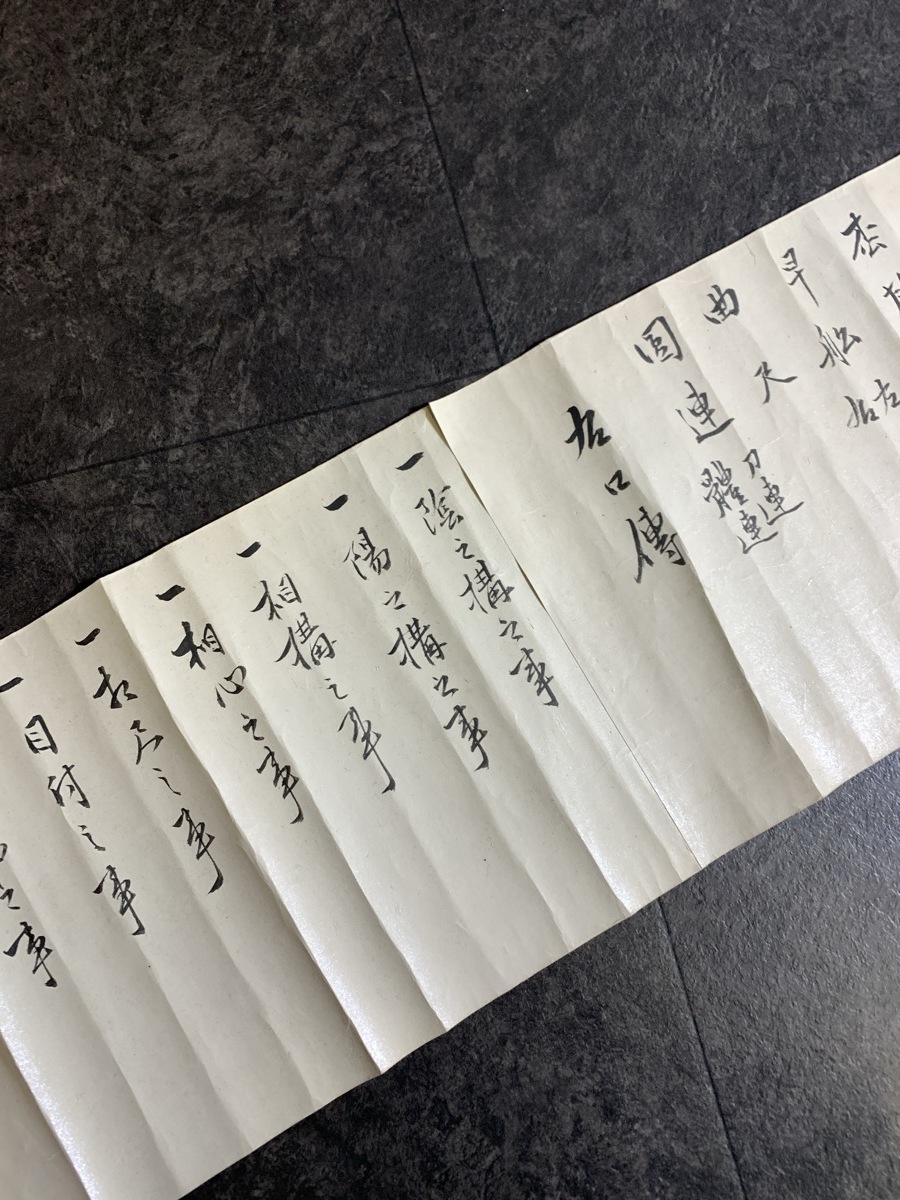 早船
右左
曲尺 刀連
圓連 體連
右口傳
一陰之構之事
一陽之構之事
一相構之事
一相心之事
一相尺之事
一目付之事
之事